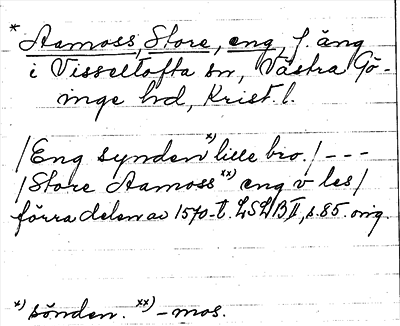 * Aamoss, Store, eng, f. äng
i Visseltofta sn, Västra Gö-
inge hd, Krist. l.
/Eng synden *) lille bro./ - - -
/Store Aamoss xx) eng v les/
förra delen av 1570-t. LSLB II, s. 85. orig.
*) sönden. xx) -mos.